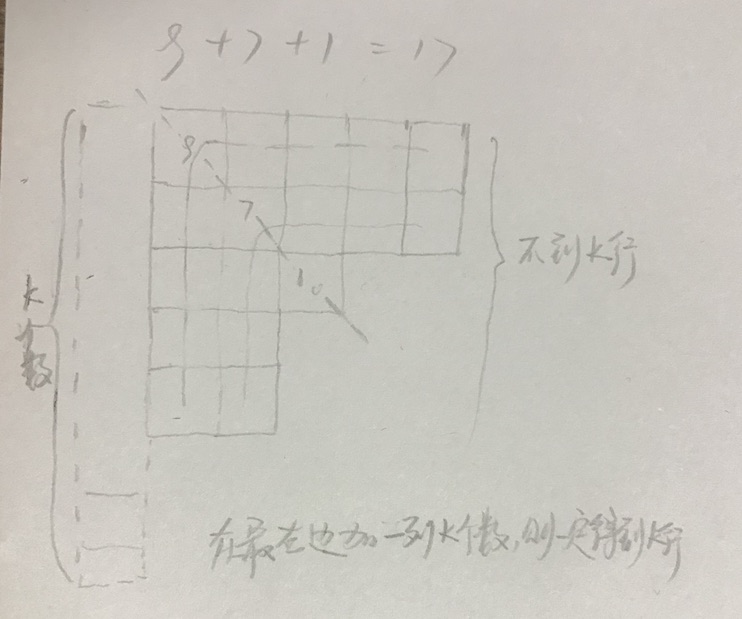 9+7+1=17
9
7
1
不到k行
k
个
数
在最左边加一列k个数,则一定得到k行